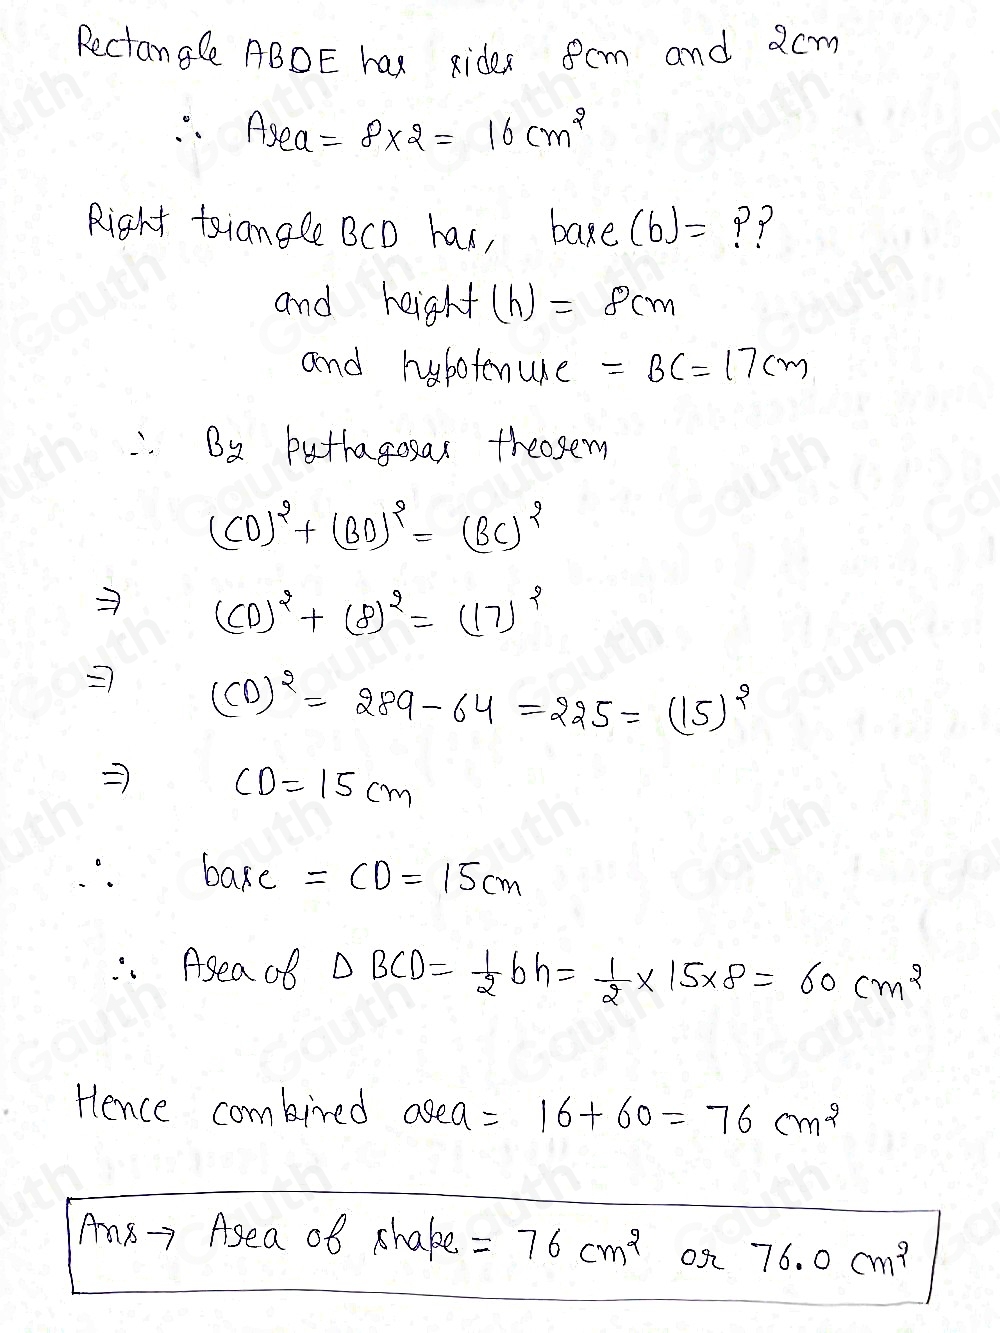 Rectangle ABDE has sides 8cm and 2cm
∴ Area = 8×2 = 16 cm²
Right triangle BCD has, base (b) = ??
and height (h) = 8cm
and hypotenuse = BC = 17cm
∴ By pythagoras theorem
(CD)² + (BD)² = (BC)²
⇒ (CD)² + (8)² = (17)²
⇒ (CD)² = 289 - 64 = 225 = (15)²
⇒ CD = 15 cm
∴ base = CD = 15cm
∴ Area of Δ BCD = 1/2 bh = 1/2 × 15×8 = 60 cm²
Hence combined area = 16 + 60 = 76 cm²
Ans → Area of shape = 76 cm² or 76.0 cm²